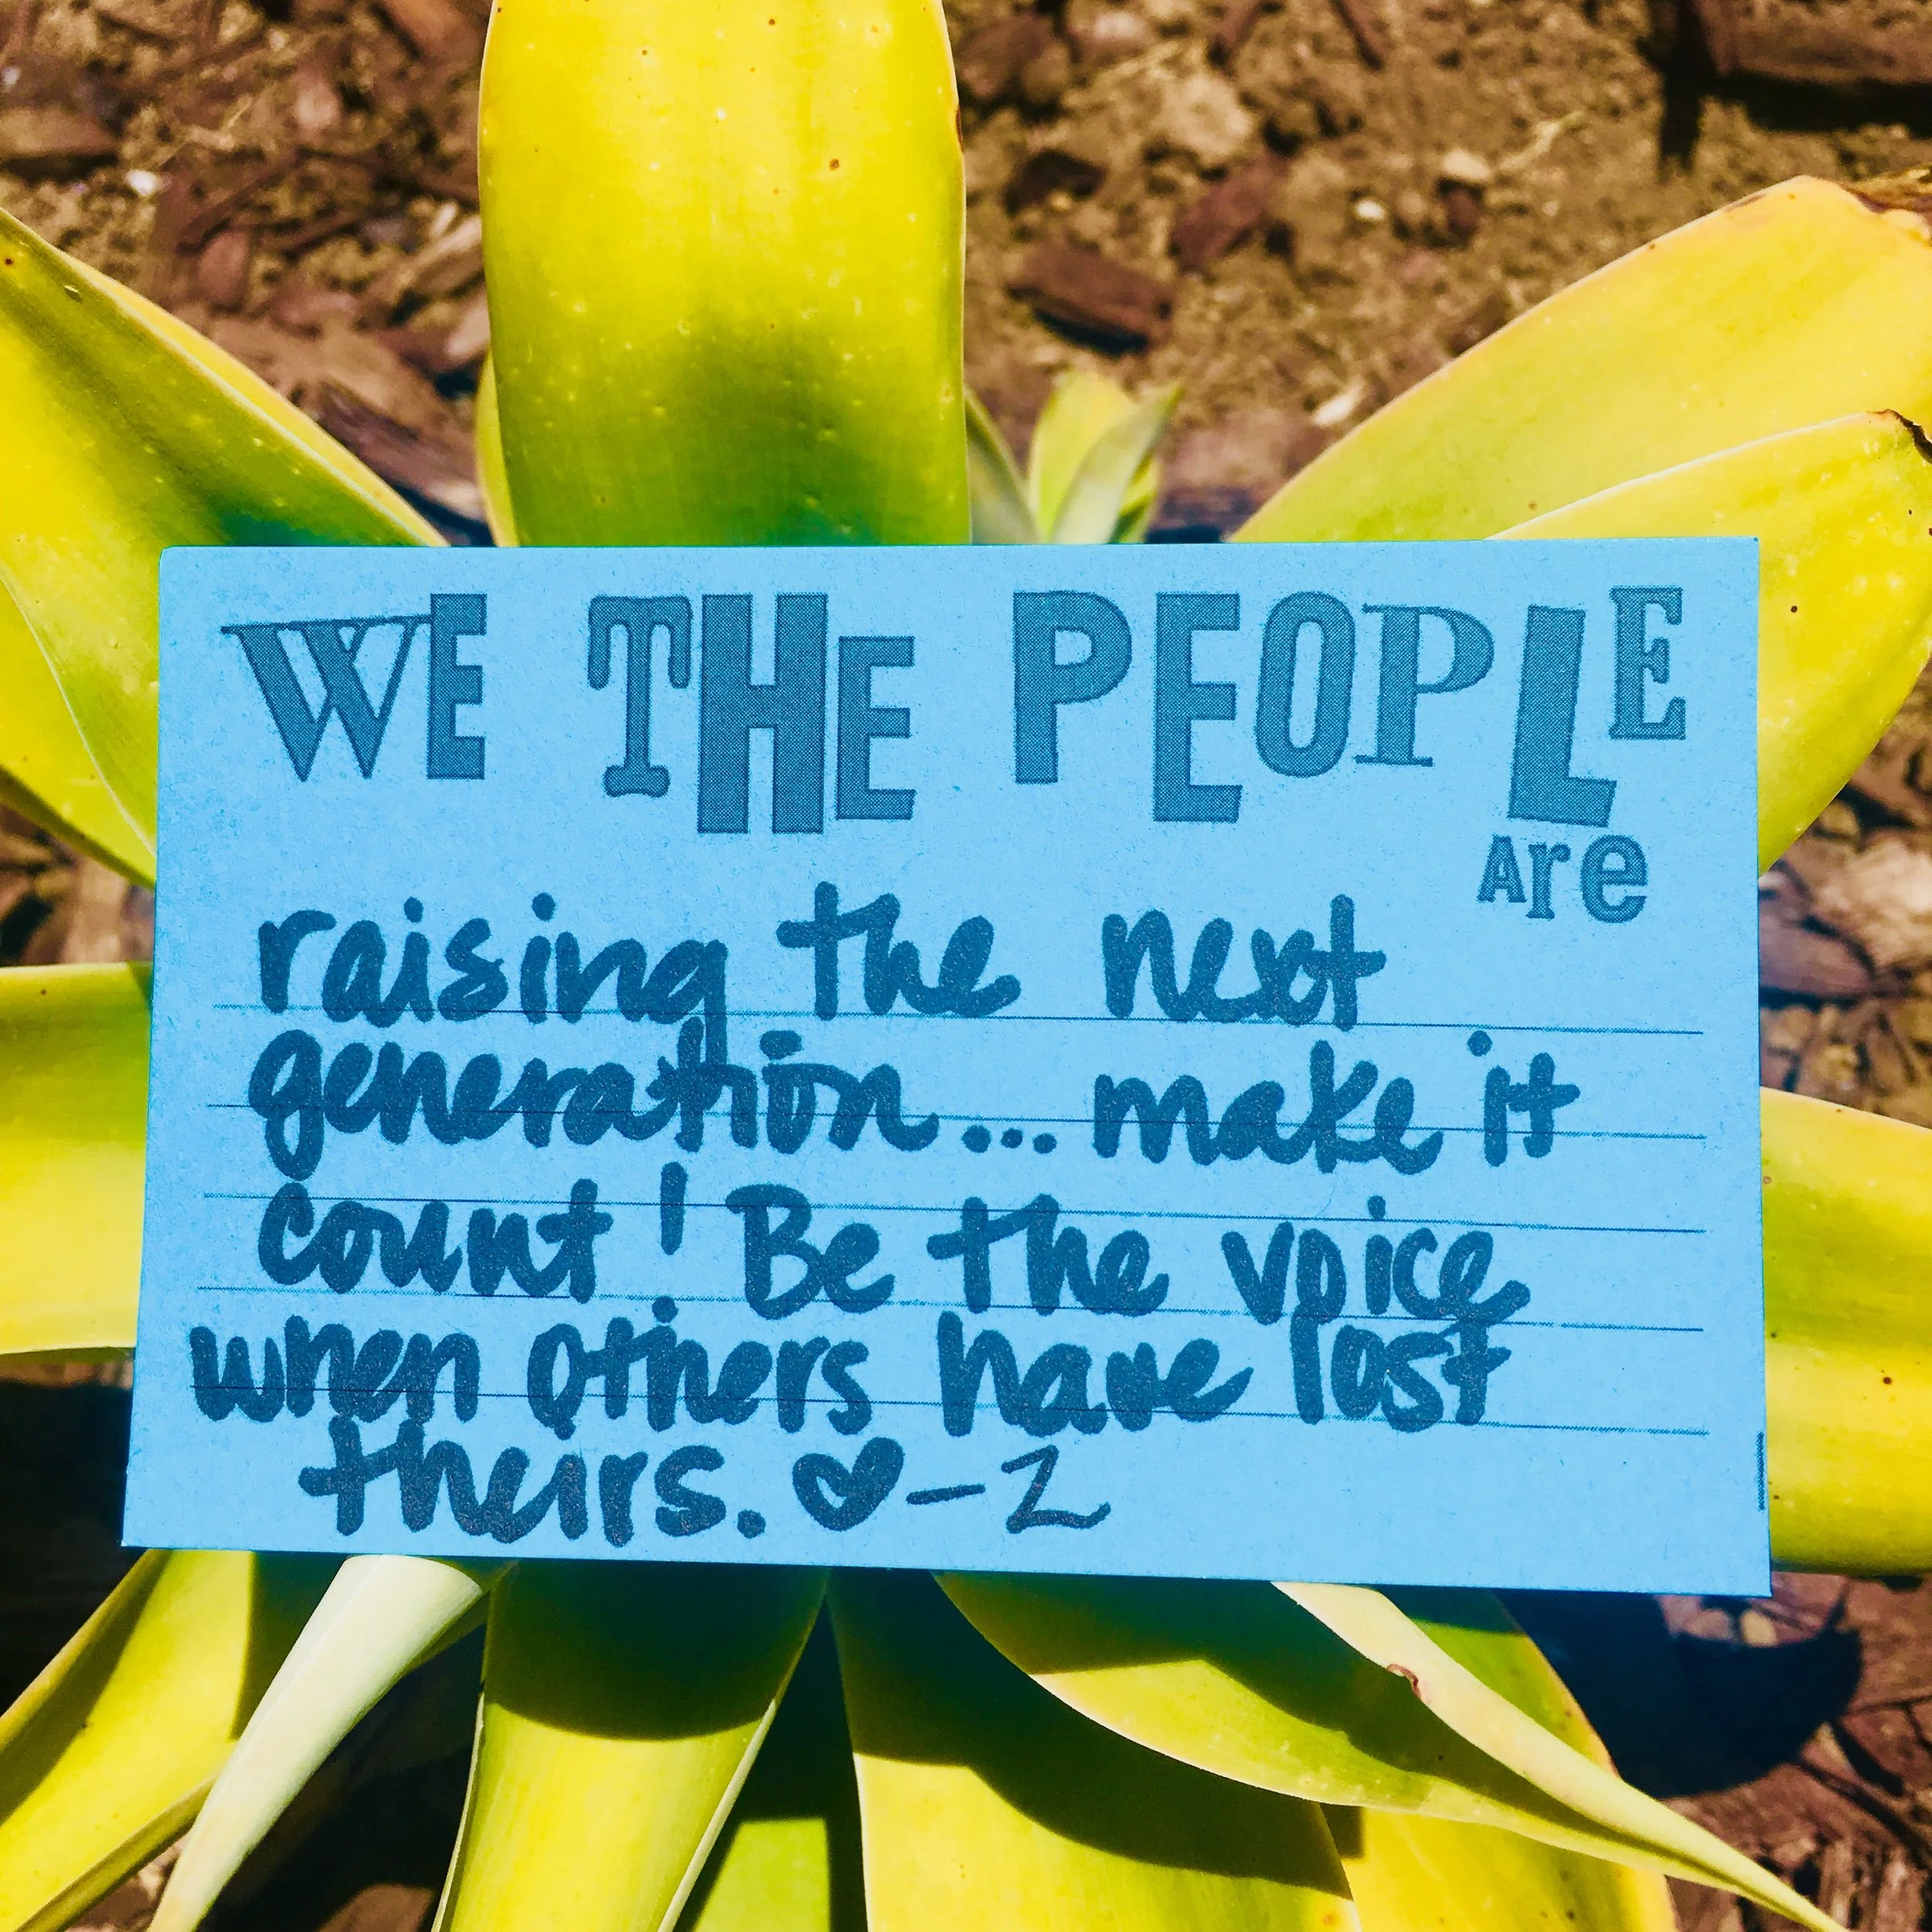 WE THE PEOPLE
Are
raising the next
generation... make it
count! Be the voice
when others have lost
theirs. ♥ - Z